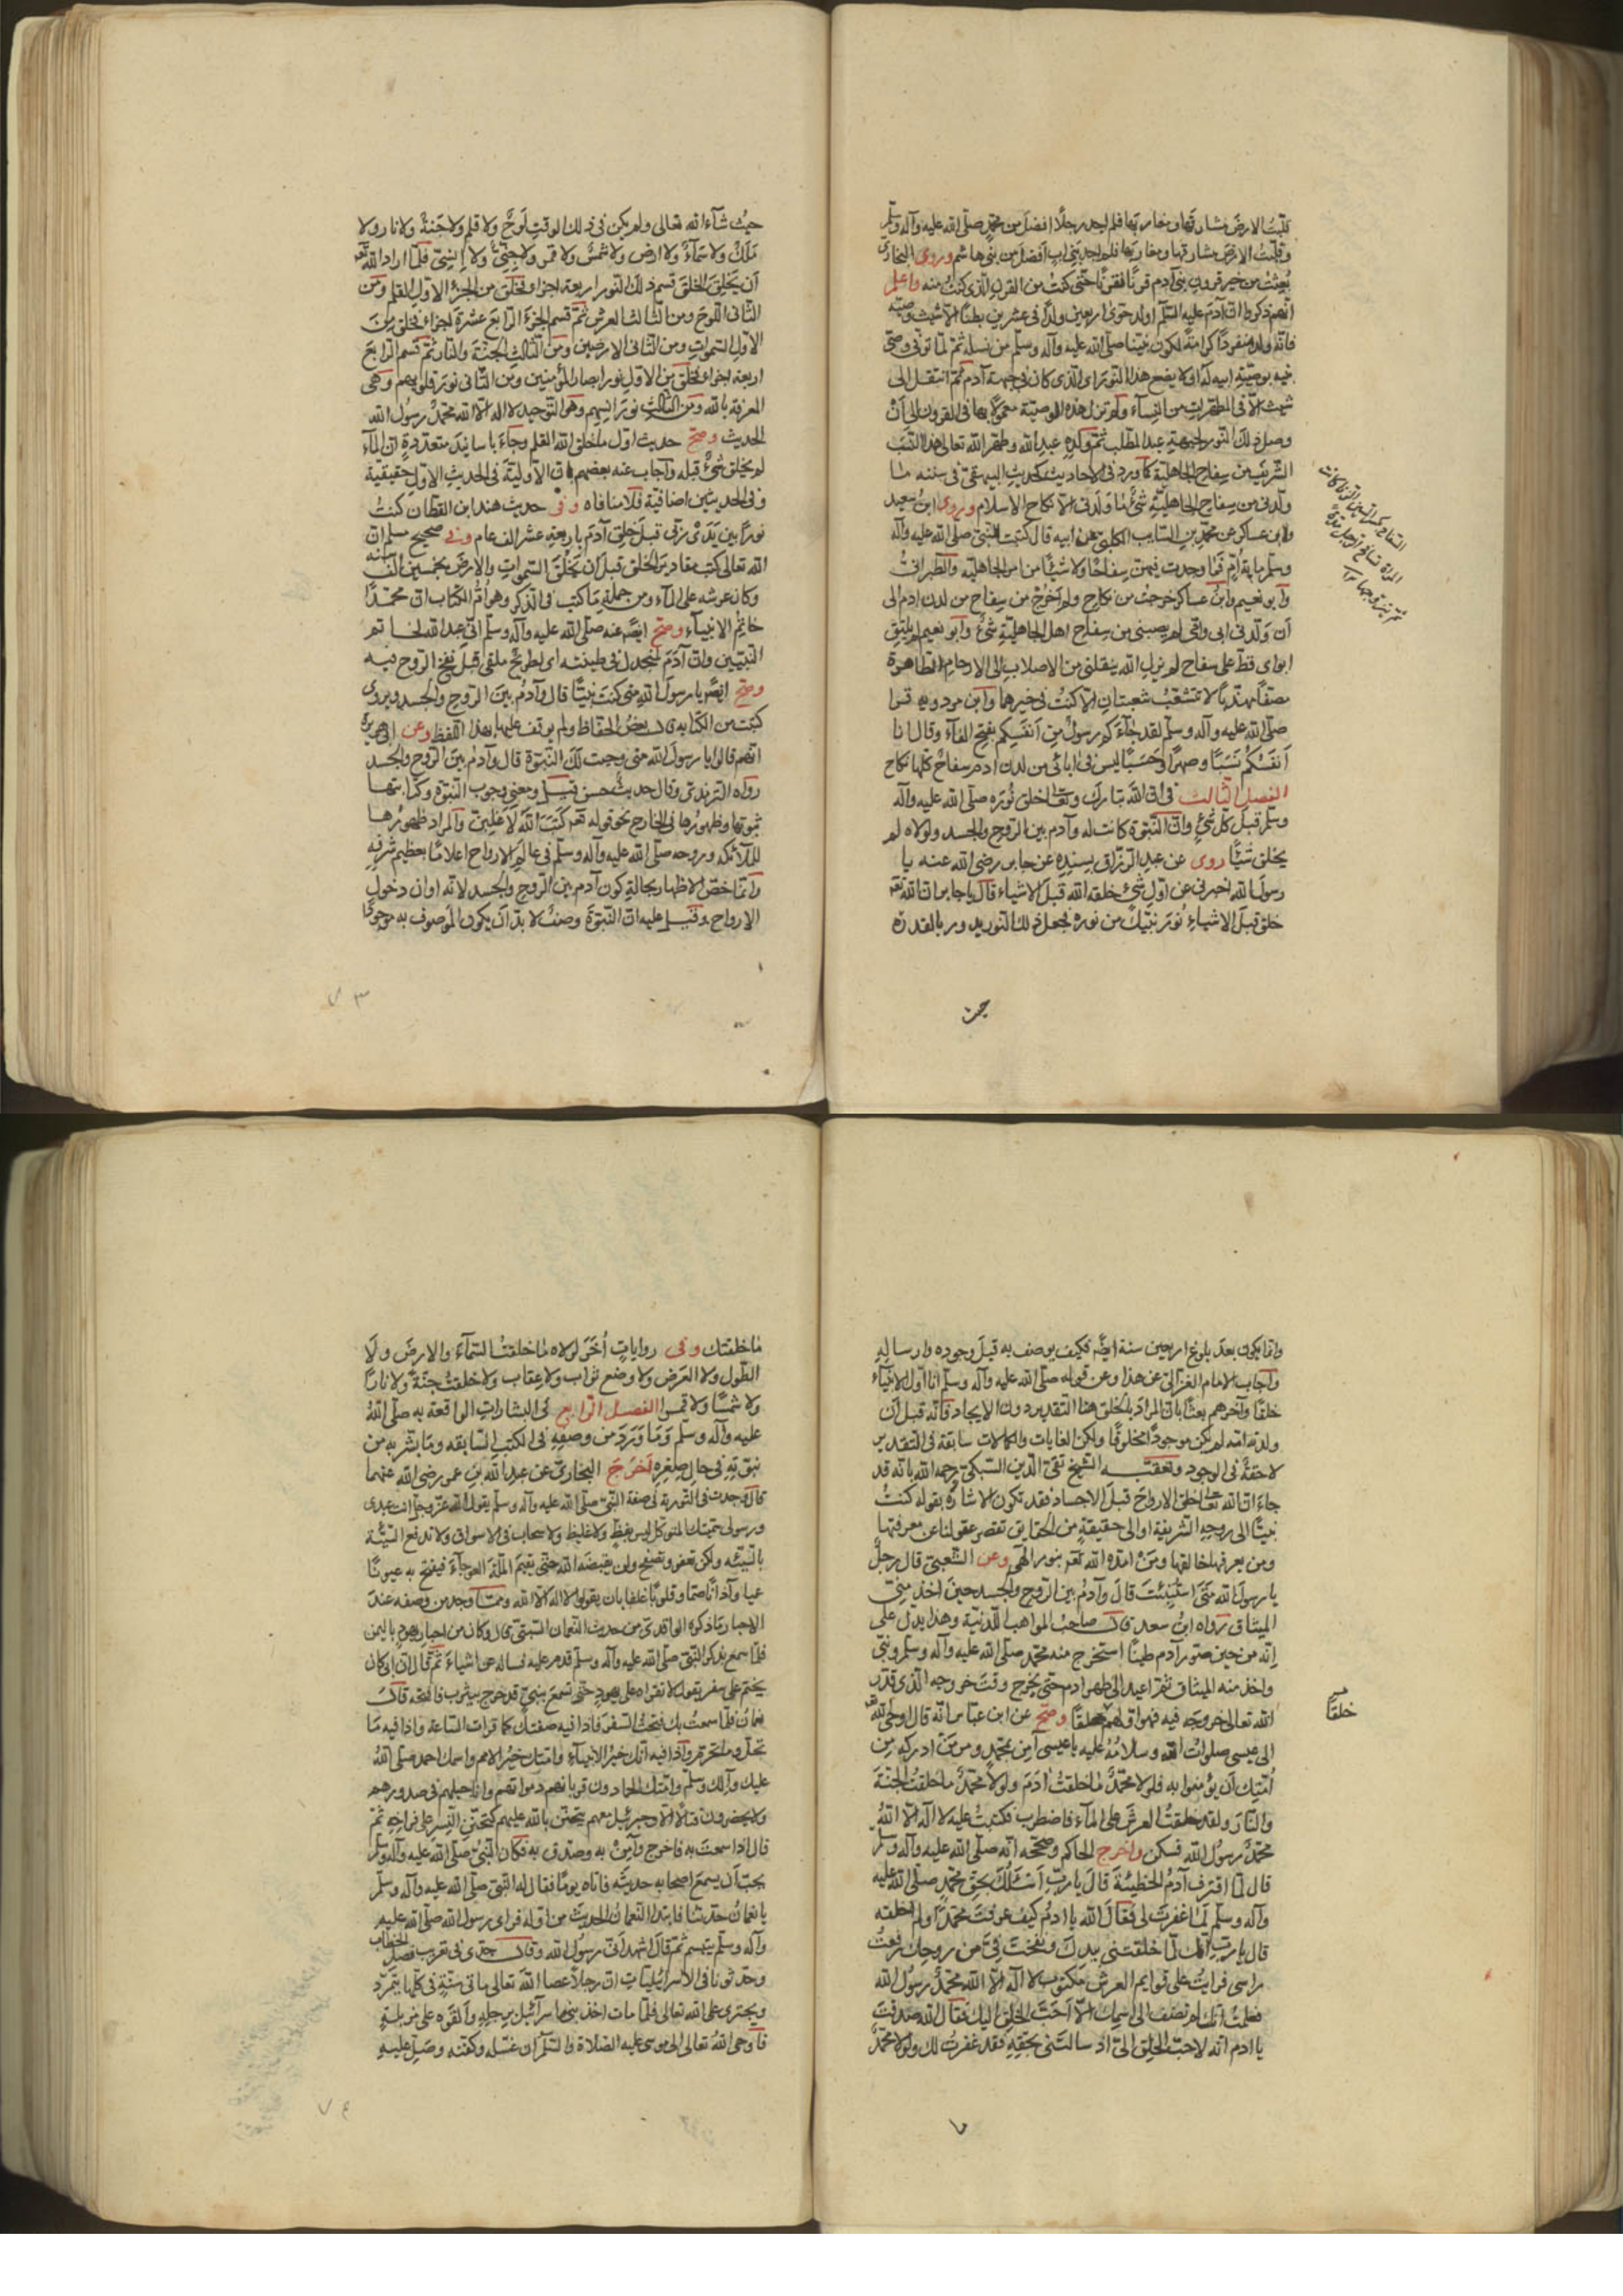 قلبت الارض مشارقها ومغاربها فلم اجد رجلا افضل من محمد صلى الله عليه وآله وسلم
وقلبت الارض مشارقها ومغاربها فلم اجد بنى اب افضل من بنى هاشم وروى البخارى
بعثت من خير قرون بنى آدم قرنا فقرنا حتى كنت من القرن الذى كنت منه واعلم
انهم ذكروا ان آدم عليه السلام اولد حوى اربعين ولدا فى عشرين بطنا الا شيث وصيه
فانه ولد منفردا كرامة لكون نبينا صلى الله عليه وآله وسلم من نسله ثم لما توفى وصى
فيه بوصية ابيه له ان لا يضع هذا النور اى الذى كان فى جبهة آدم ثم انتقل الى
شيث الا فى المطهرات من النساء ولم تزل هذه الوصية معمولا بها فى القرون الى ان
وصل ذلك النور لجبهة عبد المطلب ثم ولده عبد الله وطهر الله تعالى هذا النسب
الشريف من سفاح الجاهلية كما ورد فى الاحاديث كحديث البيهقى فى سننه ما
ولدنى من سفاح الجاهلية شئ ما ولدنى الا نكاح الاسلام وروى ابن سعيد
ولابن عساكر عن محمد بن السايب الكلبى عن ابيه قال كتبت للنبى صلى الله عليه وآله
وسلم ماية ام فما وجدت فيهن سفاحا ولا شيئا من امر الجاهلية والطبرانى
وابو نعيم وابن عساكر خرجت من نكاح ولم اخرج من سفاح من لدن ادم الى
ان ولدنى ابى وامى لم يصبنى من سفاح اهل الجاهلية شئ وابو نعيم لم يلتق
ابواى قط على سفاح لم يزل الله ينقلنى من الاصلاب الى الارحام الطاهرة
مصفا مهذبا لا تتشعب شعبتان الا كنت فى خيرهما وابن مردويه قرا
صلى الله عليه وآله وسلم لقد جاءكم رسول من انفسكم بفتح الفاء وقال انا
انفسكم نسبا وصهرا وحسبا ليس فى ابائى من لدن ادم سفاح كلها نكاح
الفصل الثالث فى ان الله تبارك وتعا خلق نوره صلى الله عليه وآله
وسلم قبل كل شئ وان النبوة كانت له وآدم بين الروح والجسد ولولاه لم
يخلق شيئا روى عن عبد الرزاق بسنده عن جابر رضى الله عنه يا
رسول الله اخبرنى عن اول شئ خلقه الله قبل الاشياء قال يا جابر ان الله تعه
خلق قبل الاشياء نور نبيك من نوره فجعل ذلك النور يدور بالقدرة
حيث
حيث شآء الله تعالى ولم يكن فى ذلك الوقت لوح ولا قلم ولا جنة ولا نار ولا
ملك ولا سمآء ولا ارض ولا شمس ولا قمر ولا جنى ولا انسى فلما اراد الله تعه
ان يخلق الخلق قسم ذلك النور اربعة اجزاء فخلق من الجزء الاول القلم ومن
الثانى اللوح ومن الثالث العرش ثم قسم الجزء الرابع عشرة اجزاء فخلق من
الاول السموات ومن الثانى الارضين ومن الثالث الجنة والنار ثم قسم الرابع
اربعة اجزاء فخلق من الاول نور ابصار المؤمنين ومن الثانى نور قلوبهم وهى
المعرفة بالله ومن الثالث نور انسهم وهو التوحيد لا اله الا الله محمد رسول الله
الحديث وصح حديث اول ما خلق الله القلم وجاء باسانيد متعددة ان المآء
لم يخلق شئ قبله واجاب عنه بعضهم بان الاولية فى الحديث الاول حقيقية
وفى الحديثين اضافية فلا منافاه وفى حديث عند ابن القطان كنت
نورا بين يدى ربى قبل خلق آدم باربعة عشر الف عام وفى صحيح مسلم ان
الله تعالى كتب مقادير الخلق قبل ان يخلق السموات والارض بخمسين الف سنه
وكان عرشه على المآء ومن جملة ما كتب فى الذكر وهو ام الكتاب ان محمدا
خاتم الانبيآء وصح ايضا عنه صلى الله عليه وآله وسلم انى عبد الله لخاتم
النبيين وان آدم لمنجدل فى طينته اى لطريح ملقى قبل نفخ الروح فيه
وصح ايضا يا رسول الله متى كنت نبيا قال وآدم بين الروح والجسد ويروى
كتبت من الكتابة قال بعض الحفاظ ولم يوقف عليها بهذا اللفظ وعن ابى هريرة
انهم قالوا يا رسول الله متى وجبت لك النبوة قال وآدم بين الروح والجسد
رواه الترمذى وقال حديث حسن قيل ومعنى وجوب النبوة وكتابتها
ثبوتها وظهورها فى الخارج نحو قوله تعه كتب الله لاغلبن والمراد ظهورها
للملائكه وروحه صلى الله عليه وآله وسلم فى عالم الارواح اعلاما بعظيم شرفه
وانما خص الاظهار بحالة كون آدم بين الروح والجسد لانه اوان دخول
الارواح وقيل عليه ان النبوة وصف لا بد ان يكون الموصوف به موجودا
٧٣
وانما يكون بعد بلوغ اربعين سنة ايضا فكيف يوصف به قبل وجوده وارساله
واجاب الامام الغزالى عن هذا وعن قوله صلى الله عليه وآله وسلم انا اول الانبيآء
خلقا وآخرهم بعثا بان المراد بالخلق هنا التقدير دون الايجاد فانه قبل ان
ولدته امه لم يكن موجودا مخلوقا ولكن الغايات والكمالات سابقة فى التقدير
لاحقة فى الوجود وتعقبه الشيخ تقى الدين السبكى رحمه الله بانه قد
جاء ان الله تعا خلق الارواح قبل الاجساد فقد تكون الاشارة بقوله كنت
نبيا الى روحه الشريفة او الى حقيقة من الحقايق تقصر عقولنا عن معرفتها
ومن يعرفها خالقها ومن امده الله تعه بنور الهى وعن الشعبى قال رجل
يا رسول الله متى استنبئت قال وآدم بين الروح والجسد حين اخذ منى
الميثاق رواه ابن سعد قال صاحب المواهب اللدنية وهذا يدل على
انه من حين صور آدم طينا استخرج منه محمد صلى الله عليه وآله وسلم ونبى
واخذ منه الميثاق ثم اعيد الى ظهر ادم حتى يخرج وقت خروجه الذى قدر
الله تعالى خروجه فيه فهو اولهم خلقا وصح عن ابن عباس انه قال اوحى الله تعه
خلقا
الى عيسى صلوات الله وسلامه عليه يا عيسى آمن بمحمد ومر من ادركه من
امتك ان يؤمنوا به فلولا محمد ما خلقت ادم ولولا محمد ما خلقت الجنة
والنار ولقد خلقت العرش على المآء فاضطرب فكتبت عليه لا اله الا الله
محمد رسول الله فسكن واخرج الحاكم وصححه انه صلى الله عليه وآله وسلم
قال لما اقترف آدم الخطيئة قال يا رب اسئلك بحق محمد صلى الله عليه
وآله وسلم لما غفرت لى فقال الله يا ادم كيف عرفت محمدا ولم اخلقه
قال يا رب انك لما خلقتنى بيدك ونفخت فى من روحك رفعت
راسى فرايت على قوايم العرش مكتوب لا اله الا الله محمد رسول الله
فعلمت انك لم تضف الى اسمك الا احب الخلق اليك فقال الله صدقت
يا ادم انه لاحب الخلق الى اذ سالتنى بحقه فقد غفرت لك ولولا محمد
ما
ما خلقتك وفى روايات اخر لولاه ما خلقت السمآء والارض ولا
الطول ولا العرض ولا وضع ثواب ولا عقاب ولا خلقت جنة ولا نارا
ولا شمسا ولا قمرا الفصل الرابع فى البشارات الواقعة به صلى الله
عليه وآله وسلم وما ورد من وصفه فى الكتب السابقه وما بشر به من
نبوته فى حال صغره اخرج البخارى عن عبد الله بن عمر رضى الله عنهما
قال وجدت فى التورية فى صفة النبى صلى الله عليه وآله وسلم يقول الله عز وجل انت عبدى
ورسولى سميتك المتوكل ليس بفظ ولا غليظ ولا سخاب فى الاسواق ولا تدفع السيئة
بالسيئه ولكن تعفو وتصفح ولن يقبضه الله حتى يقيم الملة العوجآء فيفتح به عيونا
عميا وآذانا صما وقلوبا غلفا بان يقولوا لا اله الا الله ومما وجد من وصفه عند
الاحبار ما ذكره الواقدى من حديث النعمان السبئى قال وكان من احبار يهود باليمن
فلما سمع بذكر النبى صلى الله عليه وآله وسلم قدم عليه فساله عن اشياء ثم قال ان ابى كان
يختم على سفر يقول لا تقراه على يهود حتى تسمع بنبى قد خرج بيثرب فافتحه قال
نعمان فلما سمعت بك فتحت السفر فاذا فيه صفتك كما قرات الساعة واذا فيه ما
تحل وما تحرم واذا فيه انك خير الانبياء وامتك خير الامم واسمك احمد صلى الله
عليك وآلك وسلم وامتك الحمادون قربانهم دموائهم وانا جيلهم فى صدورهم
ولا يحضرون قتالا الا وجبرئيل معهم يتحنن الله عليهم كتحنن النسر على فراخه ثم
قال اذا سمعت به فاخرج وآمن به وصدق به فكان النبى صلى الله عليه وآله وسلم
يحب ان يسمع اصحابه حديثه فاتاه يوما فقال له النبى صلى الله عليه وآله وسلم
يا نعمان حدثنا فابتدا النعمان الحديث من اوله فراى رسول الله صلى الله عليه
وآله وسلم يتبسم ثم قال اشهد انى رسول الله وقال فى تقريب فصل الخطاب
وحدثونا فى الاسرائيليات ان رجلا عصا الله تعالى مائتى سنة فى كلها يتمرد
ويجترى على الله تعالى فلما مات اخذ بنو اسرآئيل برجله والقوه على مزبلة
فاوحى الله تعالى الى موسى عليه الصلاة والسلام ان غسله وكفنه وصل عليه
٧٤